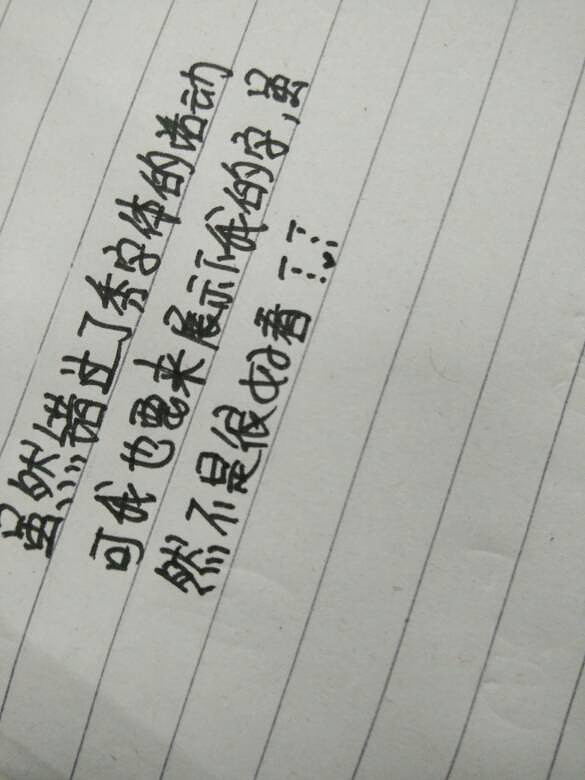 虽然错过了秀字体的活动
可我也要来展示下我的字,虽
然不是很好看